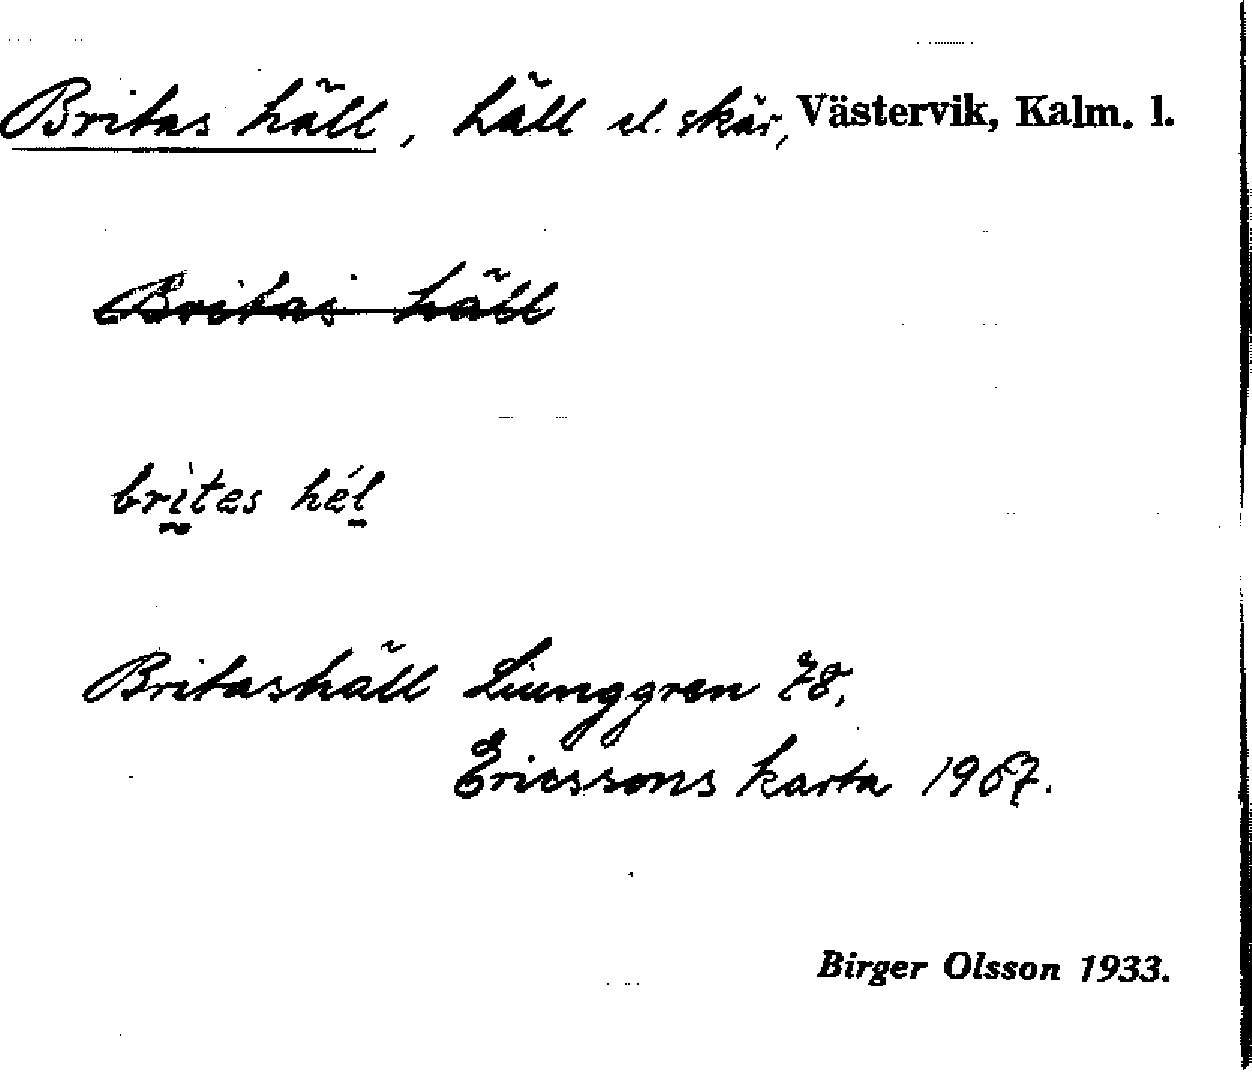 Britas häll, häll el. skär, Västervik, Kalm. l.
Britas häll
brìtes hél
Britashäll Ljunggren 78,
Ericssons karta 1967.
Birger Olsson 1933.